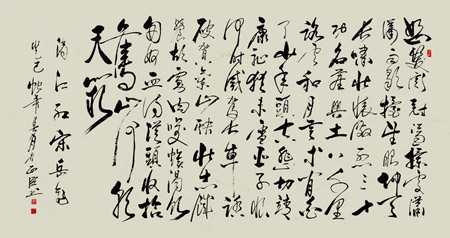 怒髮衝冠憑欄處瀟
瀟雨歇擡望眼仰天
長嘯壯懷激烈三十
功名塵與土八千里
路雲和月莫等閒白
了少年頭空悲切靖
康恥猶未雪臣子恨
何時滅駕長車踏
破賀蘭山缺壯志飢
餐胡虜肉笑談渴飲
匈奴血待從頭收拾
舊山河朝
天闕
滿江紅宋岳飛
癸巳